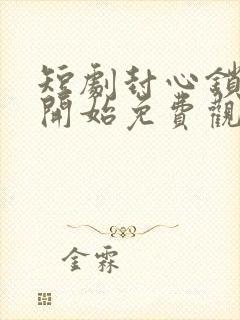 短劇封心鎖
開始免費觀
金霖